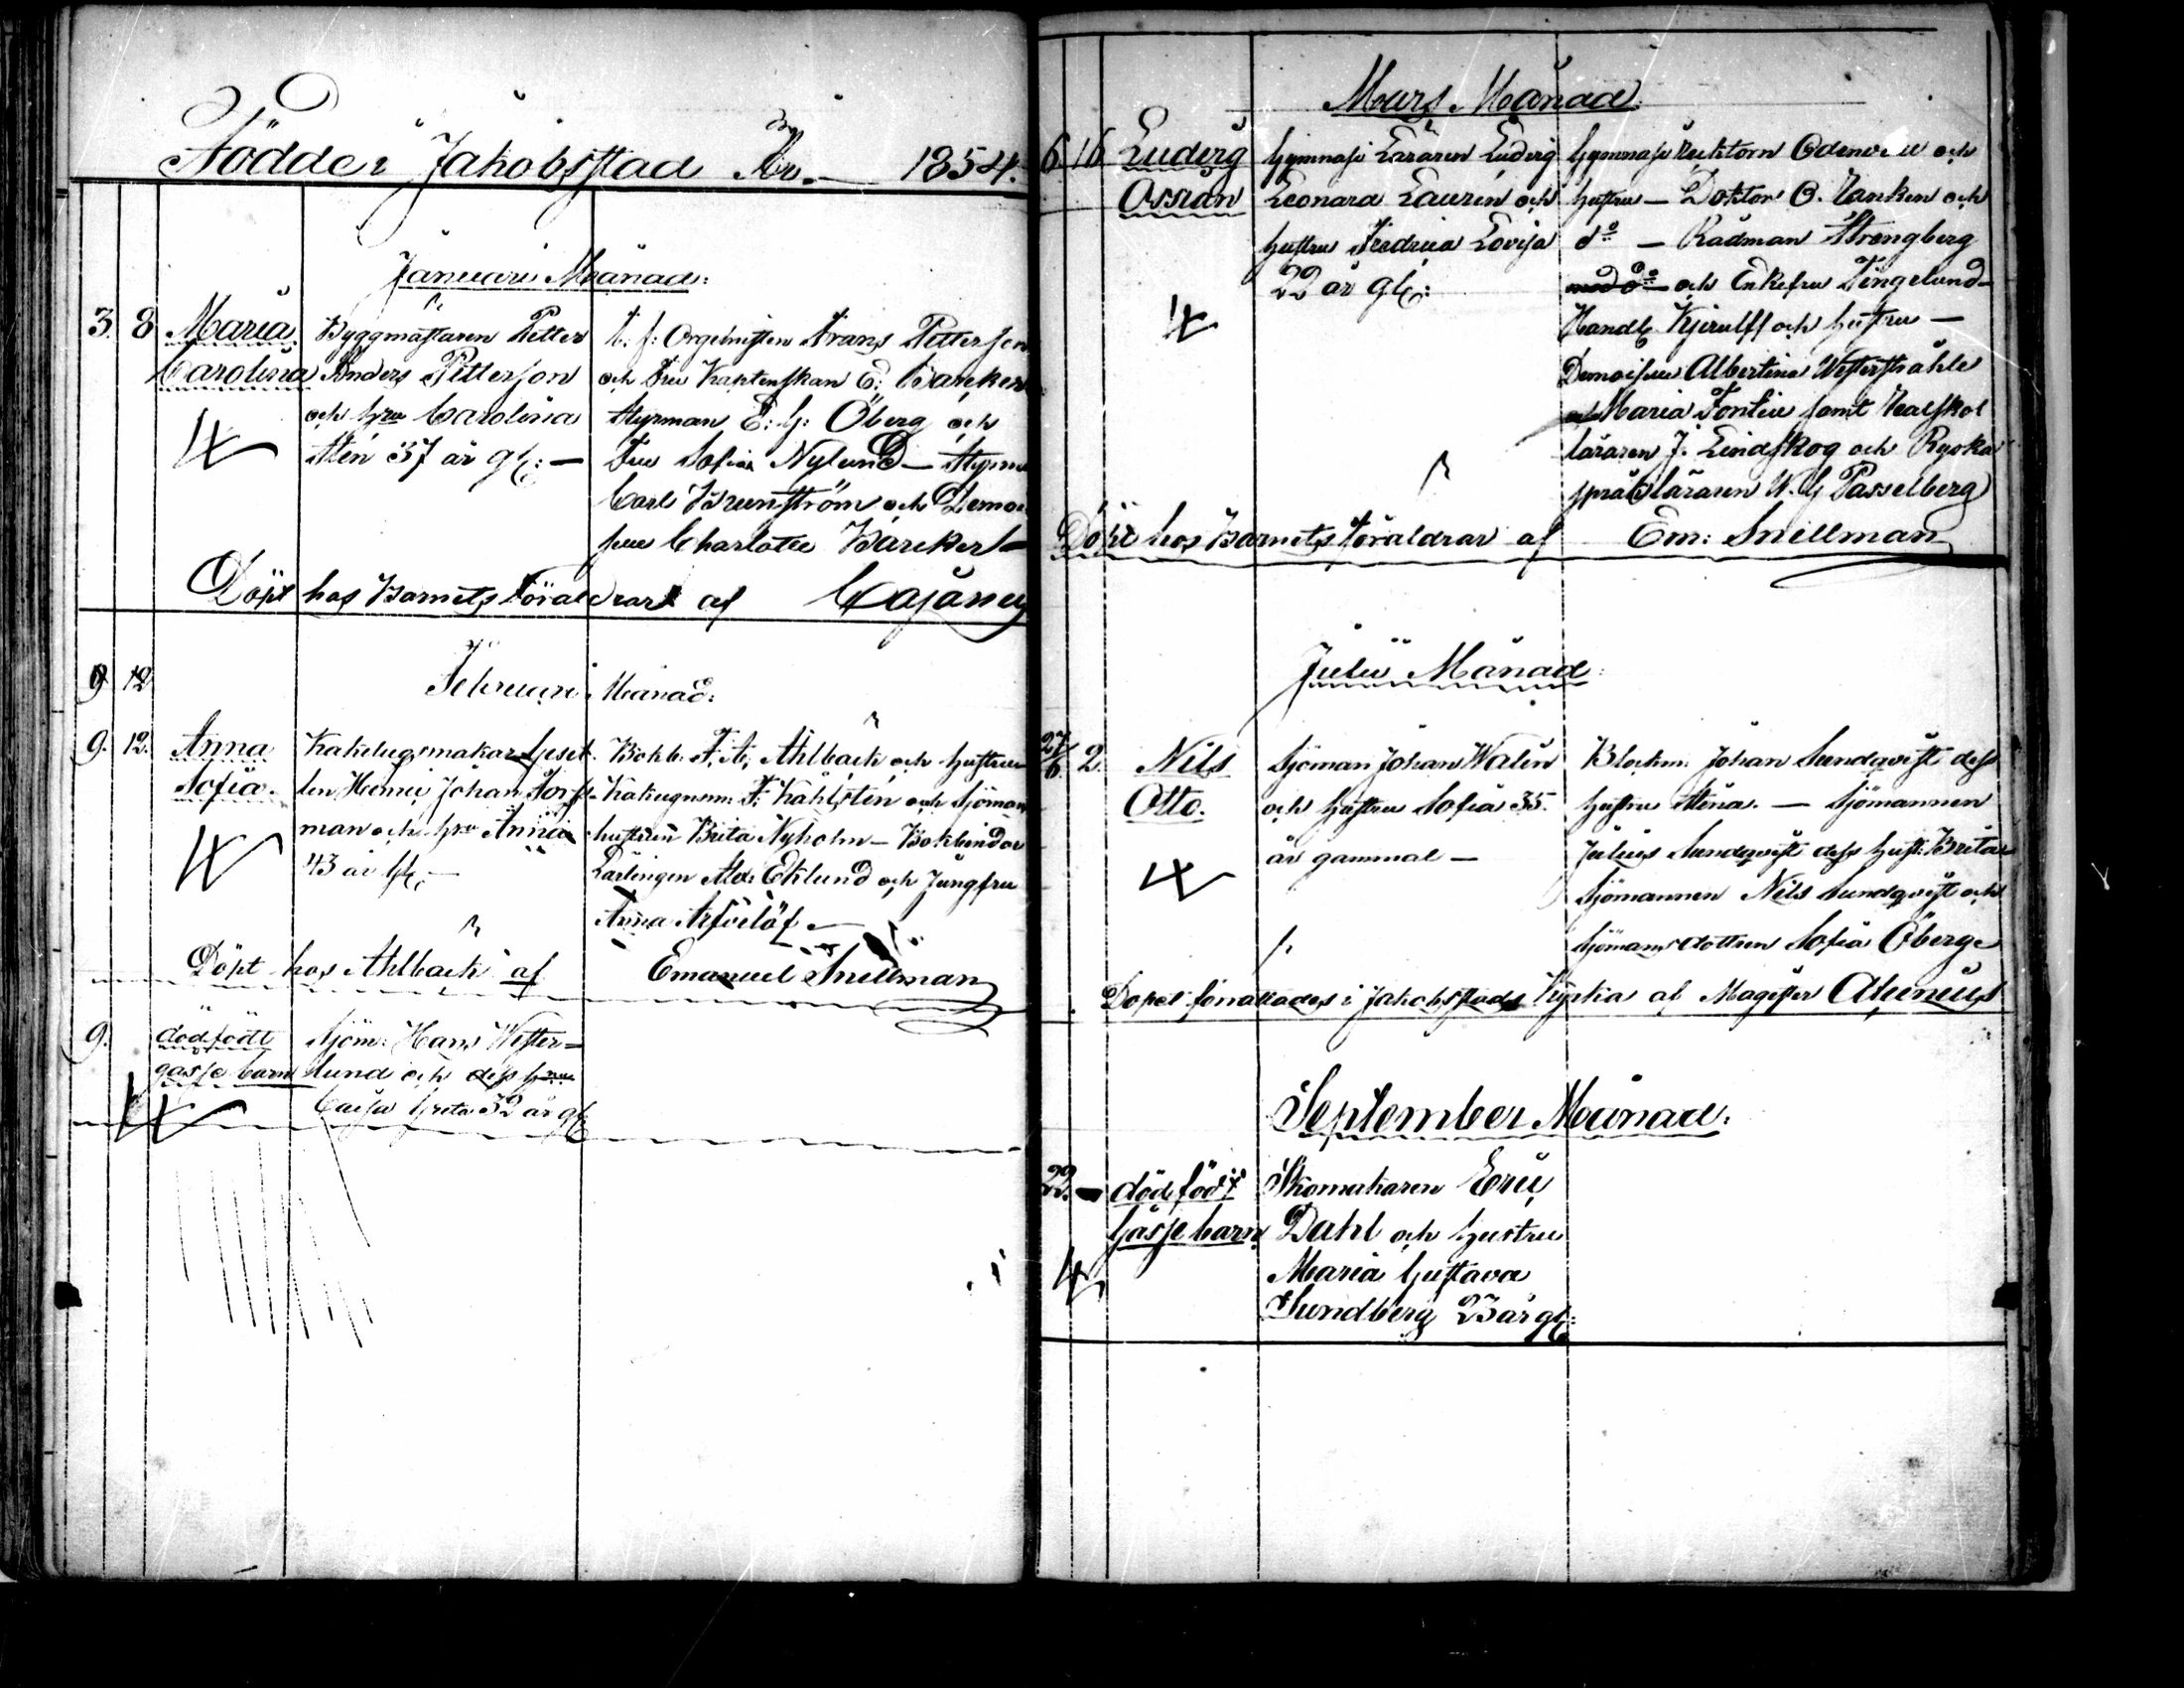 Födde i Jakobstad År 1854.
Januari Månad:
3. 8 Maria Carolina
Byggmästaren Petter
Anders Petterson
och hru Carolina
Sten 37 år gl: —
t. f. Orgelnisten Frans Petterson
och Fru Kaptenskan E: Barcker
Styrman E: G: Öberg och
Fru Sofia Nylund — Styrm
Carl Brunström och Demoi
selle Charlotte Barcker —
Döpt hos Barnets Föräldrar af Cajanus
9 12
Februari Månad:
9. 12. Anna Sofia.
Kakelugnmakar Gesel-
len Henric Johan Forss-
man och hru Anna
43 år gl: —
Bokb. F. A. Ahlback och hustru
Kakugnsm: F: Kahlsten och Sjöman
hustrun Brita Nyholm — Bokbindar
Lärlingen Alex. Eklund och Jungfru
Anna —
Döpt hos Ahlback af Emanuel Snellman
9. dödfödt gosse barn
Sjöm: Hans Wester-
lund och dess hru
Cajsa Greta 32 år gl:
Mars Månad:
6 16 Ludvig Ossian
Gymnasii Läraren Ludvig
Leonard Laurén och
hustru Fredrica Lovisa
22 år gl:
Gymnasii Rektorn och
hustru — Doktor O. och
d:o — Rådman Strengberg
med d:o — och Enkefru Tengelund —
Handl. Kjerulff och hustru —
Demoiselle Albertina Westerstråhle
och Maria Fontin samt Realskol
läraren J. Lindskog och Ryska
språkläraren W. G. Passelberg
Döpt hos Barnets föräldrar af Em: Snellman
Julii Månad:
27/6 2. Nils Otto.
Sjöman Johan Walin
och hustru Sofia 35.
år gammal —
Blockm. Johan Sundqvist dess
hustru Stina. — Sjömannen
Julius Sundqvist dess hust: Brita
Sjömannen Nils Sundqvist och
Sjömansdottren Sofia Öberg
Dopet förrättades i Jakobstads kyrka af Magister Alcenius
September Månad:
22. — dödfödt Gosse barn
Skomakaren Eric
Dahl och hustru
Maria Gustava
Sundberg 23 år gl: